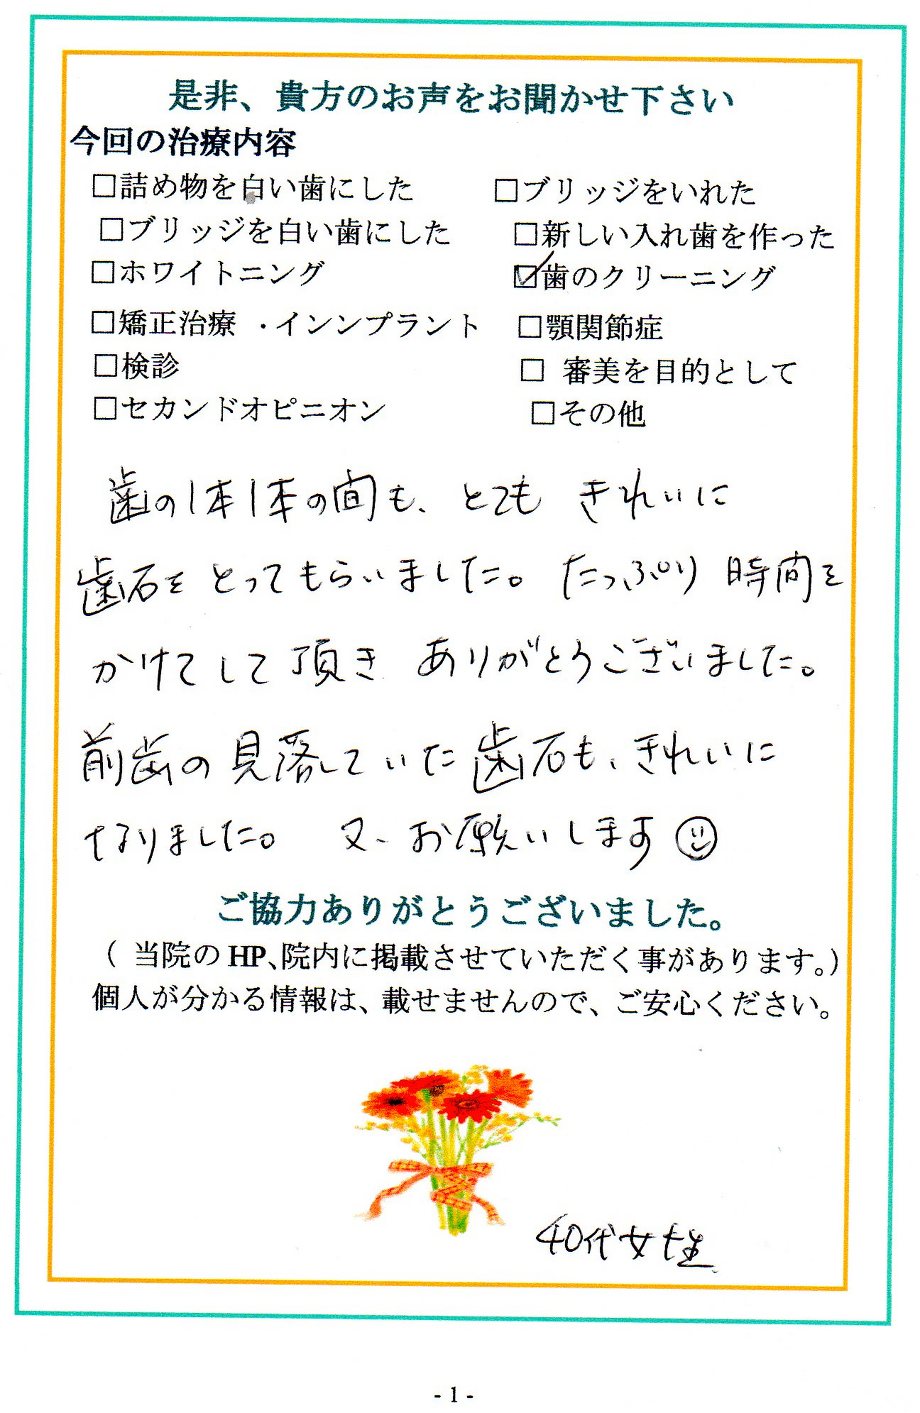 是非、貴方のお声をお聞かせ下さい
今回の治療内容
□詰め物を白い歯にした □ブリッジをいれた
□ブリッジを白い歯にした □新しい入れ歯を作った
□ホワイトニング ☑歯のクリーニング
□矯正治療 ・インンプラント □顎関節症
□検診 □ 審美を目的として
□セカンドオピニオン □その他
歯の1本1本の間も、とても きれいに
歯石を とってもらいました。たっぷり 時間を
かけてして頂き ありがとうございました。
前歯の見落していた歯石も、きれいに
なりました。 又、お願いします☺
ご協力ありがとうございました。
( 当院の HP、院内に掲載させていただく事があります。)
個人が分かる情報は、載せませんので、ご安心ください。
40代女性
- 1 -